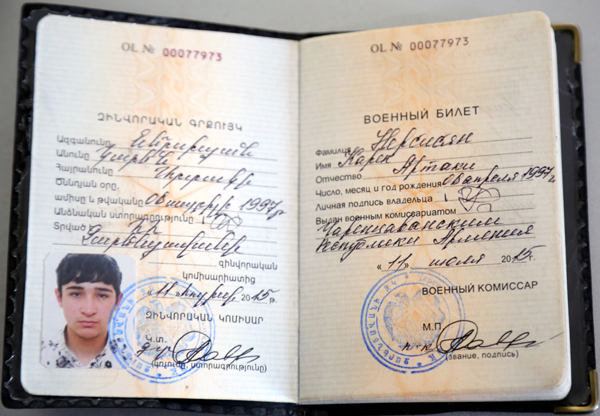 OL № 00077973
ԶԻՆՎՈՐԱԿԱՆ ԳՐՔՈՒՅԿ
Ազգանունը
Անունը Կարեն
Հայրանունը
Ծննդյան օրը,
ամիսը և թվականը 08 ապրիլի 1997թ
Անձնական ստորագրությունը
Տրված է
զինվորական
կոմիսարիատից
«11 2015 թ.
ԶԻՆՎՈՐԱԿԱՆ ԿՈՄԻՍԱՐ
Կ.տ.
(կոչումը, ստորագրությունը)
OL № 00077973
ВОЕННЫЙ БИЛЕТ
Фамилия Нерсисян
Имя Карен
Отчество Артаки
Число, месяц и год рождения 08 апреля 1997г
Личная подпись владельца
Выдан военным комиссариатом
Чаренцаванским
Республики Армения
«11» июля 2015г.
ВОЕННЫЙ КОМИССАР
М.П.
п-к
(звание, подпись)